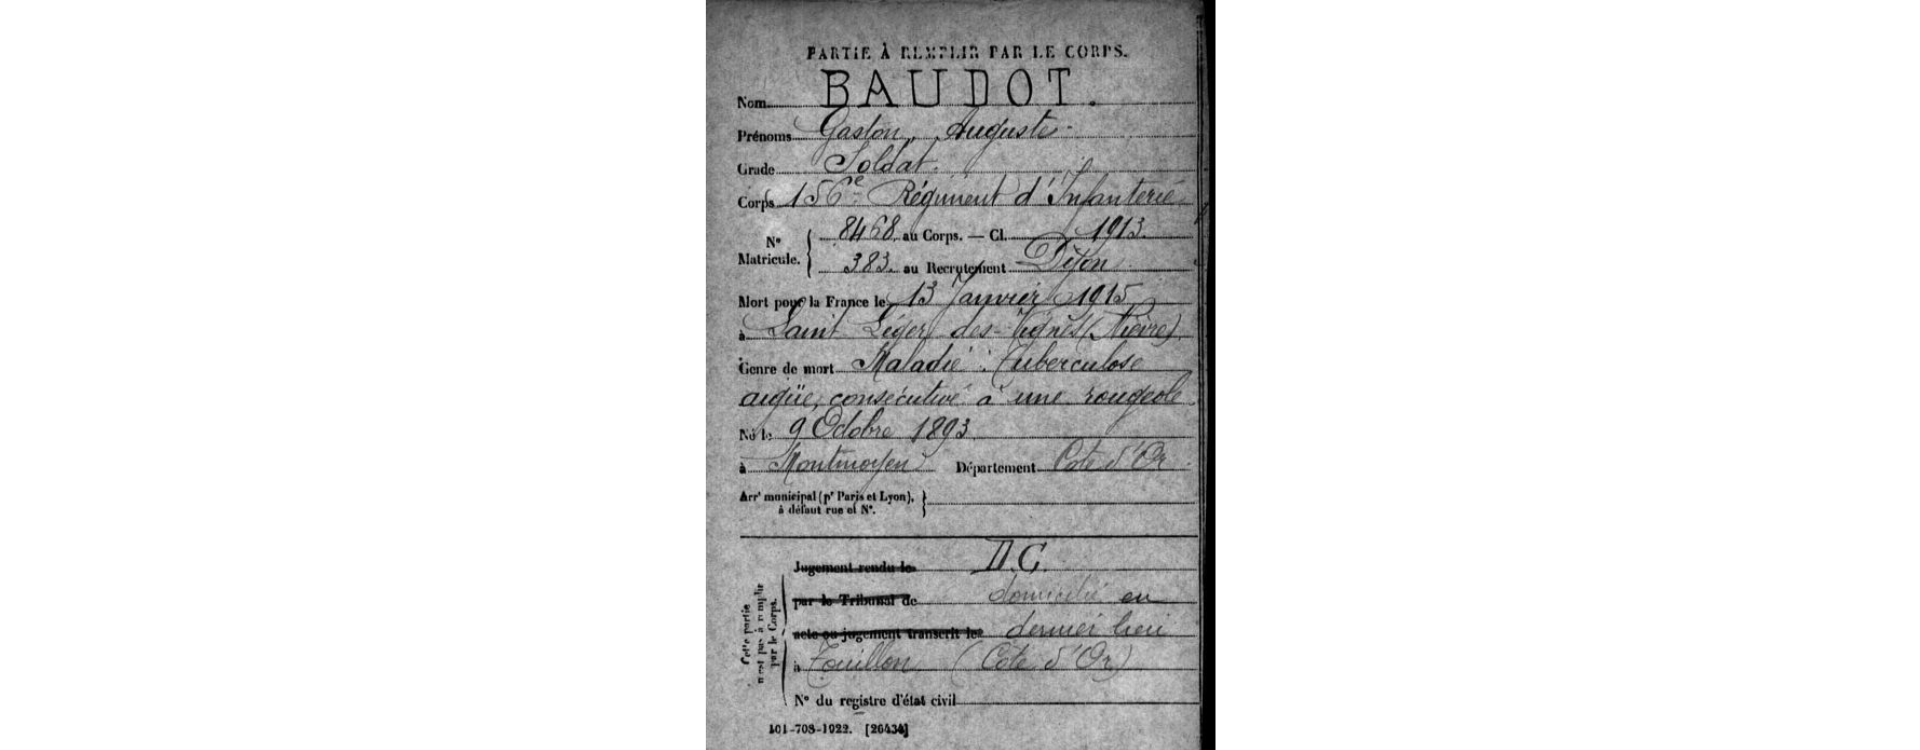 PARTIE À REMPLIR PAR LE CORPS.
Nom BAUDOT.
Prénoms Gaston, Auguste
Grade Soldat.
Corps 156e Régiment d'Infanterie
N° Matricule. { 8468. au Corps. — Cl. 1913.
383. au Recrutement Dijon
Mort pour la France le 13 Janvier 1915
à Saint Léger des Vignes (Nièvre)
Genre de mort Maladie : Tuberculose
aigüe, consécutive à une rougeole
Né le 9 Octobre 1893
à Montmoyen Département Cote d'Or
Arrt municipal (pr Paris et Lyon), à défaut rue et N°. }
Cette partie n'est pas à remplir par le Corps.
Jugement rendu le D.C.
par le Tribunal de domicilié en
acte ou jugement transcrit le dernier lieu
à Touillon (Côte d'Or)
N° du registre d'état civil
101-708-1922. [26434]